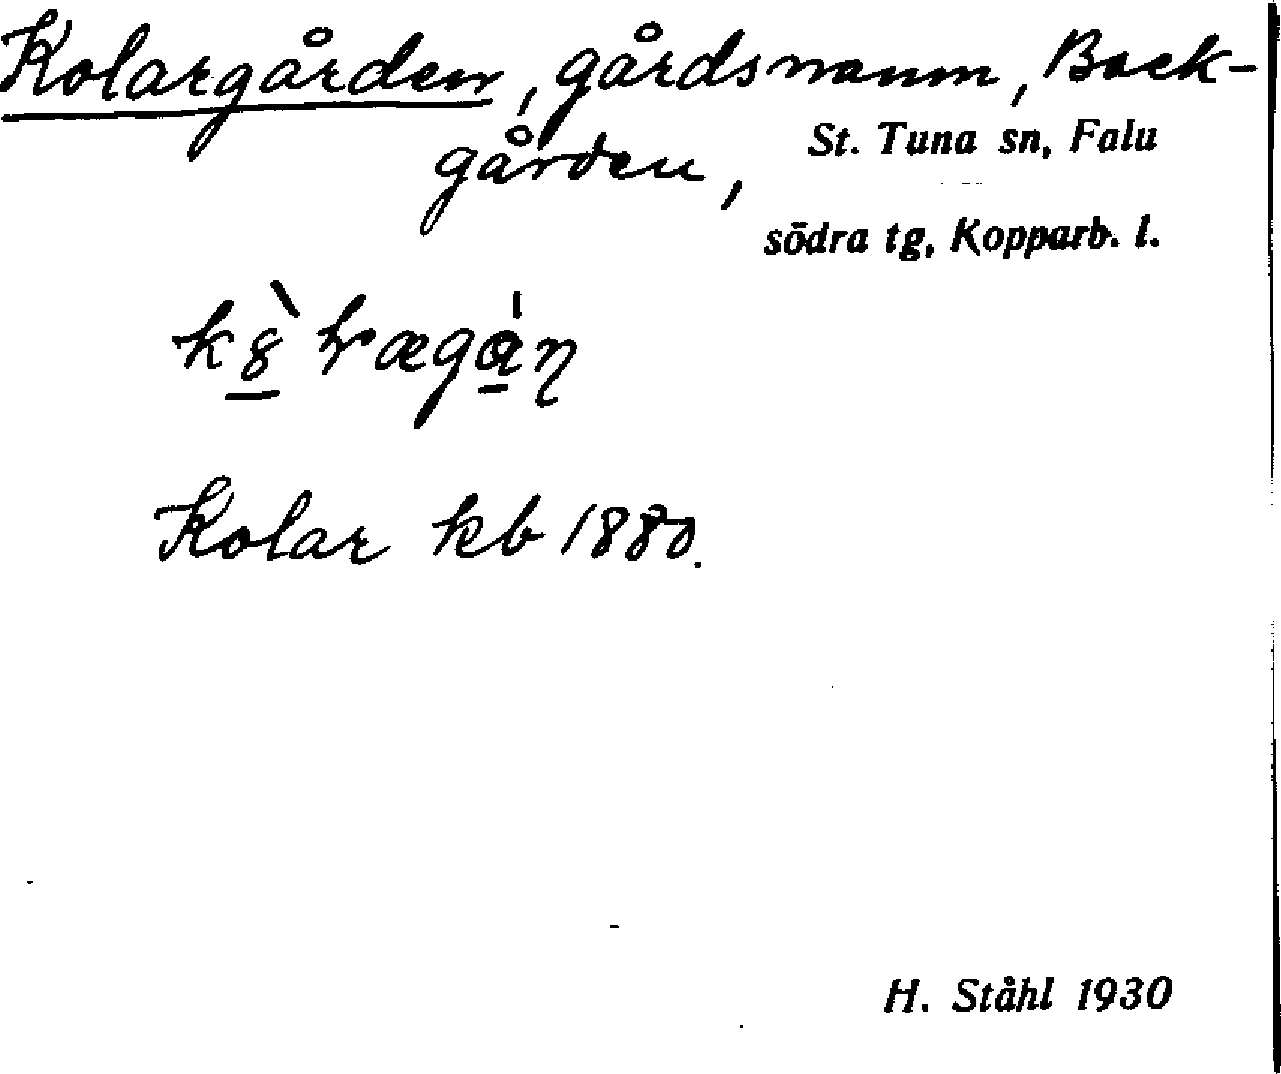 Kolargården, gårdsnamn, Back-
gården,
St. Tuna sn, Falu
södra tg, Kopparb. l.
Kolar kb 1880.
H. Ståhl 1930